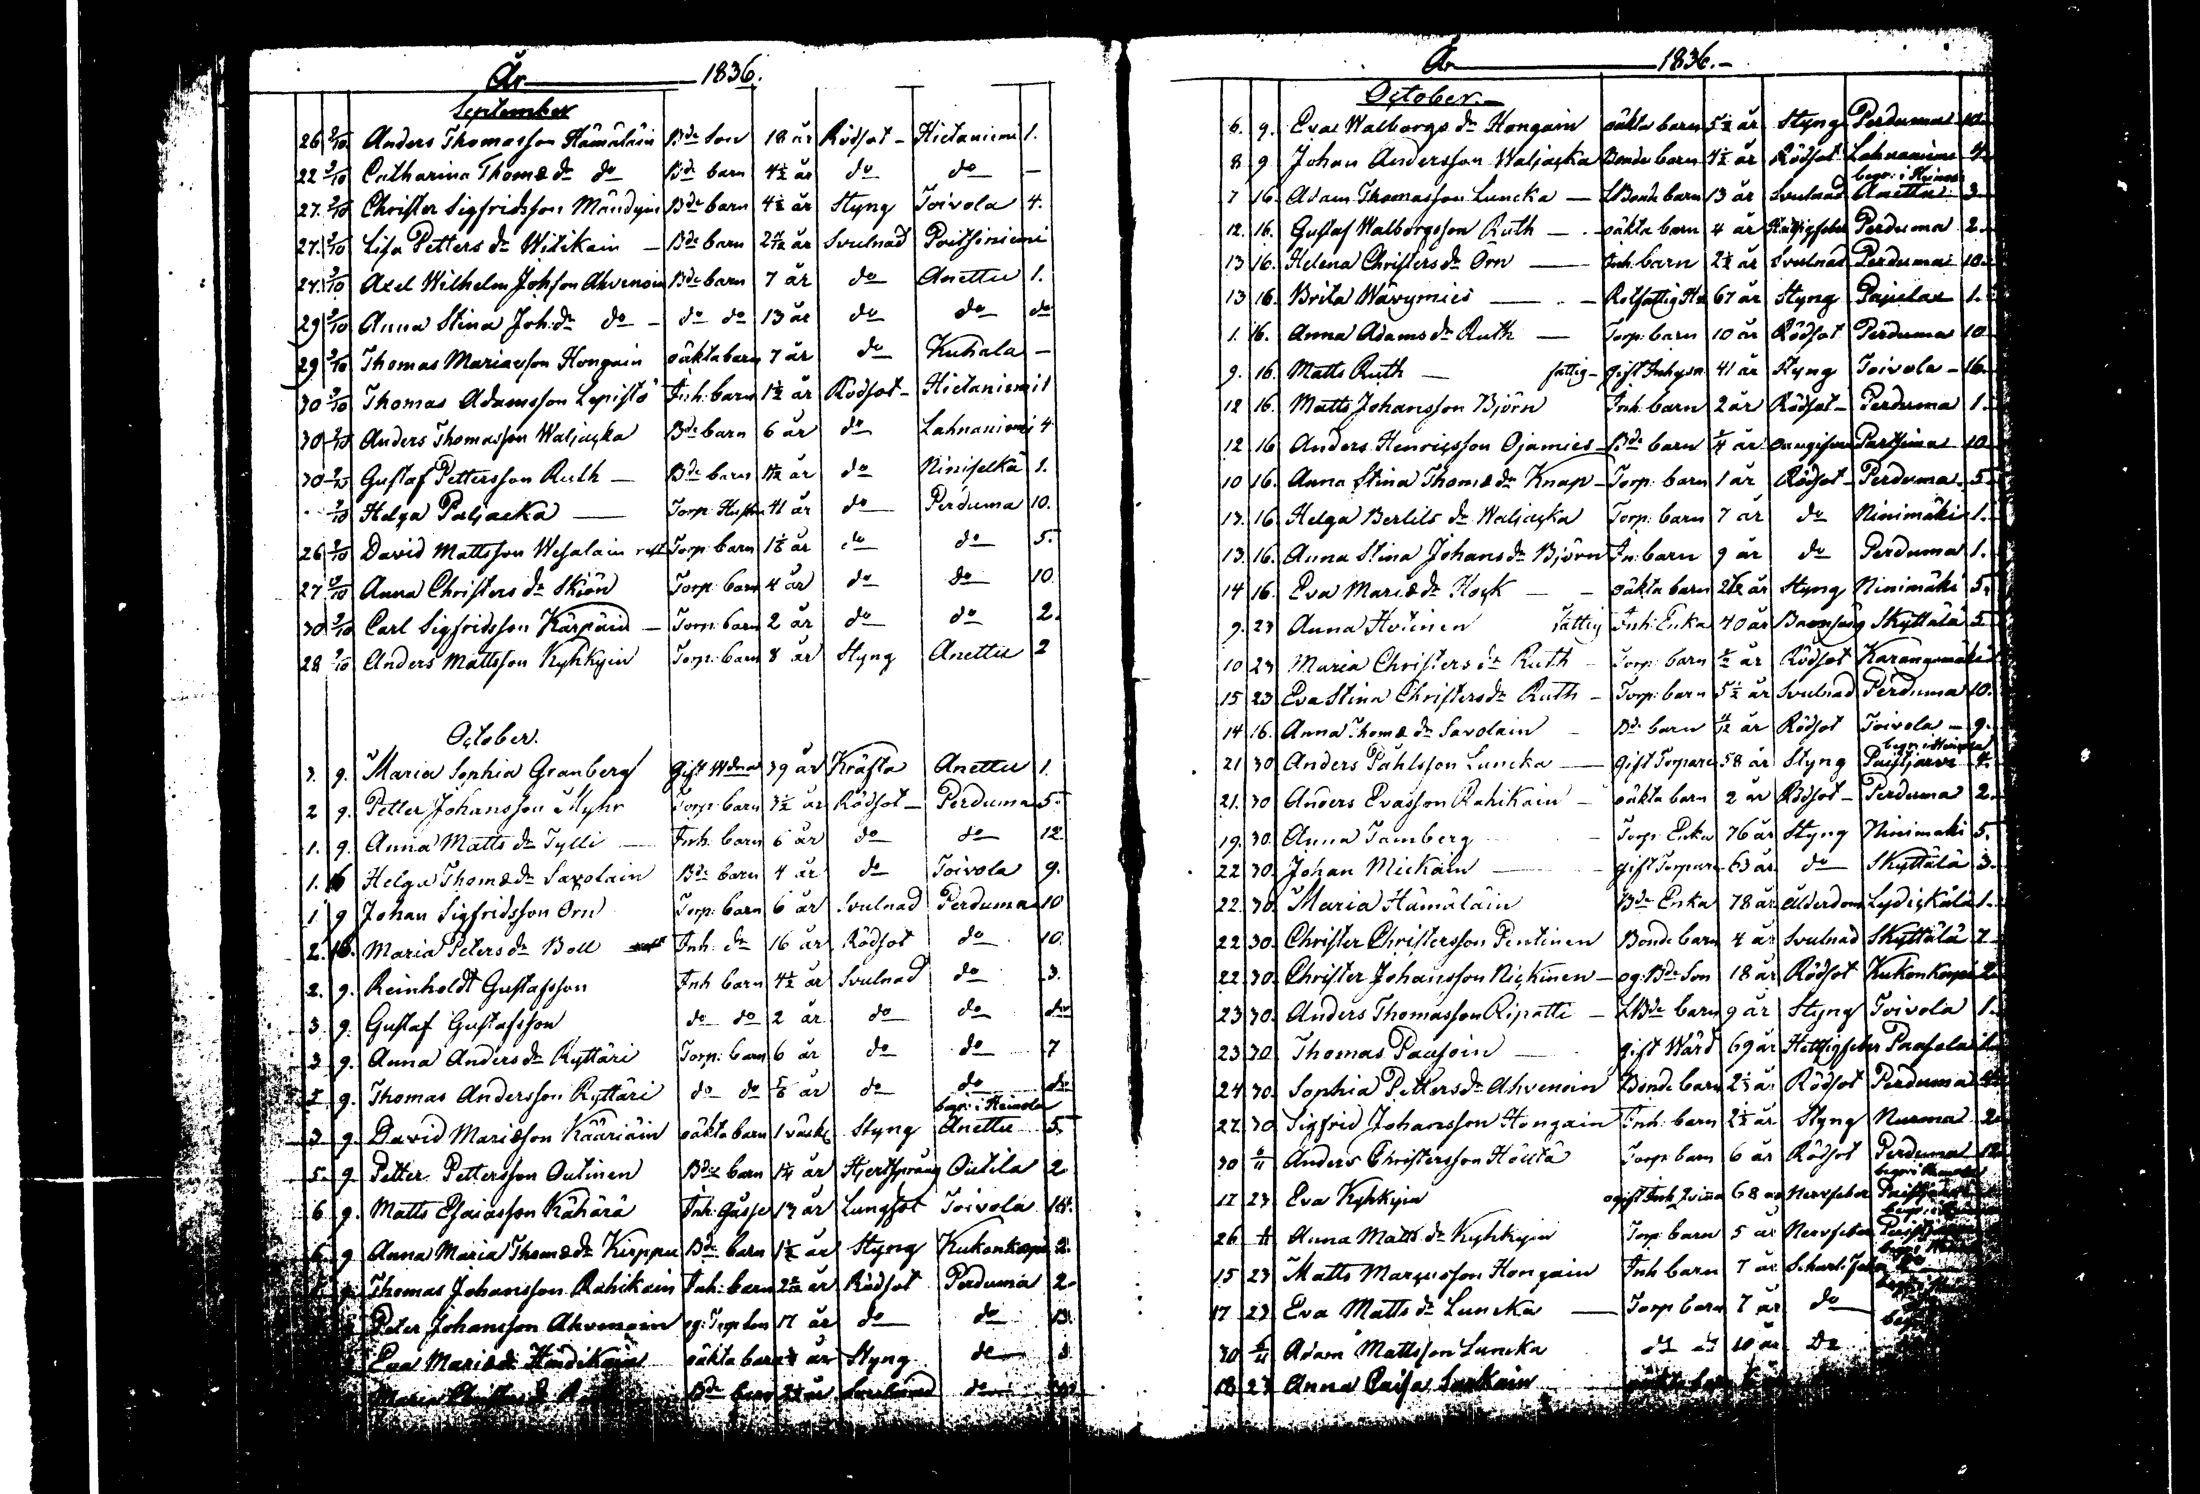 År 1836.
September
26 2/10 Anders Thomasson Hämäläin Bde Son 18 år Rödsot Hietaniemi 1.
22 2/10 Catharina Thomæ dr do Bde barn 4½ år do do —
27. 2/10 Christer Sigfridsson Mändyin Bde barn 4½ år Styng Toivola 4.
27. 2/10 Lisa Petters dr Witikain Bde barn Svulnad Poitsiniemi
27. 2/10 Axel Wilhelm Johsson Ahvenoin Bde barn 7 år do Anettu 1.
29 2/10 Anna Stina Joh: dr do do do 13 år do do do
29 2/10 Thomas Mariæson Hongain oäkta barn 7 år do Kuhala —
30 2/10 Thomas Adamsson Lepistö Inh: barn 1½ år Rödsot Hietaniemi 1
30 2/10 Anders Thomasson Waljacka Bde barn 6 år do Lahnaniemi 4
30 2/10 Gustaf Pettersson Ruth Bde barn år do Niniselkä 1.
2/10 Helga Paljacka Torp: Hustru 41 år do Perduma 10.
26 2/10 David Mattsson Wesalain Torp: barn år do do 5.
27 2/10 Anna Christers dr Skiön Torp: barn 4 år do do 10.
30 2/10 Carl Sigfridsson Kärpäin Torp: barn 2 år do do 2.
28 2/10 Anders Mattsson Kyhkyin Torp: barn 8 år Styng Anettu 2
October.
3. 9. Maria Sophia Granberg gift 39 år Kräfta Anettu 1.
2 9. Petter Johansson Myhr Torp: barn 3½ år Rödsot Perduma 5.
1. 9. Anna Matts dr Tylli Inh: barn 6 år do do 12.
1. 16 Helga Thomæ dr Savolain Bde barn 4 år do Toivola 9.
1. 9 Johan Sigfridsson Örn Torp: barn 6 år Svulnad Perduma 10
2. 16. Maria Peters dr Boll Inh: dr 16 år Rödsot do 10.
2. 9. Reinholdt Gustafsson Inh barn 4½ år Svulnad do 3.
3. 9. Gustaf Gustafsson do do 2 år do do do
3 9. Anna Anders dr Ryttäri Torp: barn 6 år do do 7
9. Thomas Andersson Ryttäri do do år do do do
begr: i Heinola
3 9. David Mariæson Kääriäin oäkta barn Styng Anettu 5.
5. 9 Petter Pettersson Outinen Bde barn år Hertsprång Outila 2
6 9. Matts Esaiasson Kähärä Inh: Gåsse 13 år Lungsot Toivola
6. 9 Anna Maria Thomæ dr Kirppu Bde barn 1½ år Styng Kukonkorpi 2.
Thomas Johansson Rahikain Inh: barn år Rödsot Perduma 2
Peter Johansson Ahvenain og: Torp: Son 17 år do do 13.
Eva Mariæ dr oäkta barn år Styng do
Bde barn 2½ år do
År 1836.
October.
6. 9. Eva Walborgs dr Hongain oäkta barn 5½ år Styng Perduma 10
8 9 Johan Andersson Waljacka Bonde barn 4½ år Rödsot Lahnaniemi 4
begr: i Heinola
7 16. Adam Thomasson Luncka Bonde barn 13 år Svulnad Anettu 3
12. 16. Gustaf Walborgsson Ruth oäkta barn 4 år Perduma 2
13 16. Helena Christers dr Örn Inh: barn 2½ år Svulnad Perduma 10
13 16. Brita Wärymies Rotfattig 67 år Styng Pajula 1.
1. 16. Anna Adams dr Ruth Torp: barn 10 år Rödsot Perduma 10
9. 16. Matts Ruth fattig gift Inhyses 41 år Styng Toivola 16
12 16. Matts Johansson Björn Inh: barn 2 år Rödsot Perduma 1.
12 16 Anders Henricsson Ojamies Bde barn ¼ år Partsima 10
10 16. Anna Stina Thomæ dr Knap Torp: barn 1 år Rödsot Perduma 5
13. 16 Helga Bertils dr Waljacka Torp: barn 7 år do Ninimäki 1.
13. 16. Anna Stina Johans dr Björn In: barn 9 år do Perduma 1.
14 16. Eva Mariæ dr Kock oäkta barn år Styng Ninimäki 5.
9. 23 Anna Hotinen fattig Inh: Enka 40 år Skyttälä 5
10 23 Maria Christers dr Ruth Torp: barn år Rödsot Karangomäki
15 23 Eva Stina Christers dr Ruth Torp: barn 5½ år Svulnad Perduma 10.
14 16. Anna Thomæ dr Savolain Bde barn år Rödsot Toivola 9.
begr: i Heinola
21 30 Anders Påhlsson Luncka gift Torpare 58 år Styng Paistjärvi 4.
21. 30 Anders Evasson Rahikain oäkta barn 2 år Rödsot Perduma 2
19. 30. Anna Tamberg Torp: Enka 76 år Styng Ninimäki 5.
22 30. Johan Mickain gift Torpare 63 år do Skyttälä 3.
22. 30. Maria Hämäläin Bde Enka 78 år Ålderdom Lydickälä 1.
22 30. Christer Christersson Pentinen Bonde barn 4 år Svulnad Skyttälä 7
22. 30. Christer Johansson Nickinen og: Bde Son 18 år Rödsot Kukonkorpi 2
23 30. Anders Thomasson Ripatti Bde barn 9 år Styng Toivola 1.
23 30. Thomas Paasoin gift Wård 69 år Hetsigfeber Paasola 1.
24 30. Sophia Petters dr Ahvenoin Bonde barn 2½ år Rödsot Perduma
27. 30 Sigfrid Johansson Hongain Inh: barn 2½ år Styng Nurma 2
30 6/11 Anders Christersson Höltä Torp: barn 6 år Rödsot Perduma 12
begr: i Heinola
17 23 Eva Kyhkyin ogift Inh: Qvinna 68 år Nervfeber Paistjärvi
26 6/11 Anna Matts dr Kyhkyin Torp: barn 5 år Nervfeber
15 23 Matts Marcusson Hongain Inh barn 7 år Scharl: Feber do
17 23 Eva Matts dr Luncka Torp barn 7 år do
30 6/11 Adam Mattsson Luncka do do 10 år do
18 23 Anna Caisa oäkta barn